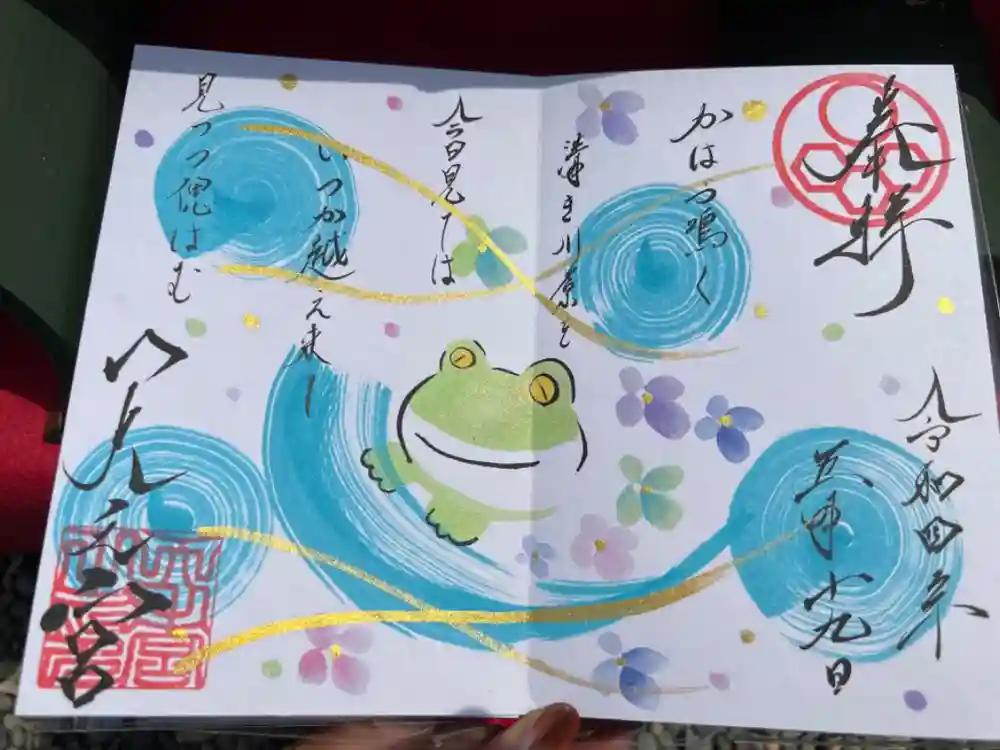 奉拝
令和四年
五月廿九日
かはづ鳴く
清き川原を
今日見ては
いつか越え来て
見つつ偲はむ